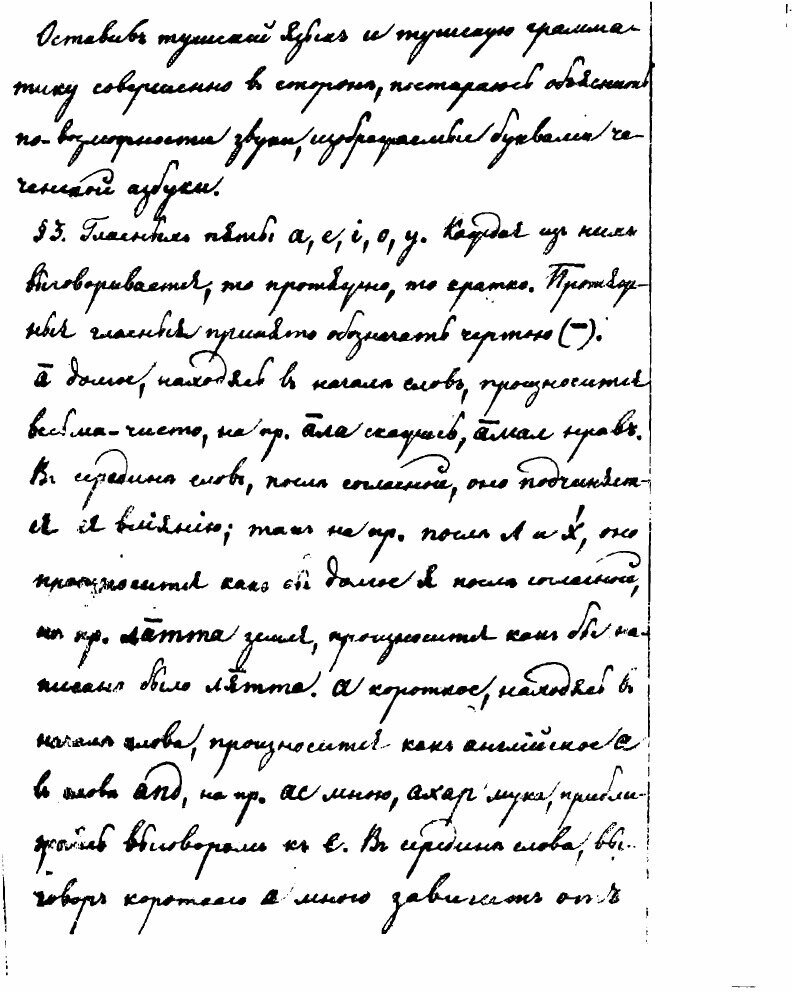 Оставивъ тушский языкъ и тушскую грамма-
тику совершенно въ сторонѣ, постараюсь объяснить
по-возможности звуки, изображаемые буквами че-
ченской азбуки.
§3. Гласныхъ пять: а, е, i, о, у. Каждая изъ нихъ
выговаривается, то протяжно, то кратко. Протяж-
ныя гласныя принято обозначать чертою (–).
ā долгое, находясь въ началѣ словъ, произносится
весьма-чисто, на пр. āла скажешь, āмал нравъ.
Въ срединѣ словъ, послѣ согласной, оно подчиняет-
ся я влiянiю; такъ на пр. послѣ л и х́, оно
произносится какъ бы долгое я послѣ согласной,
на пр. лāтта земля, произносится какъ бы на-
писано было ля̄тта. а короткое, находясь въ
началѣ слова, произносится какъ англiйское а
въ словѣ and, на пр. ас мною, ахар мука, прибли-
жаясь выговоромъ къ е. Въ срединѣ слова, вы-
говоръ короткаго а много зависитъ отъ